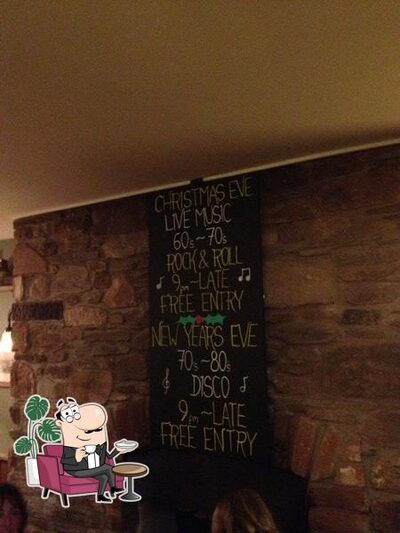 CHRISTMAS EVE
LIVE MUSIC
60s~70s
ROCK & ROLL
9pm~LATE
FREE ENTRY
NEW YEARS EVE
70s~80s
DISCO
9pm~LATE
FREE ENTRY